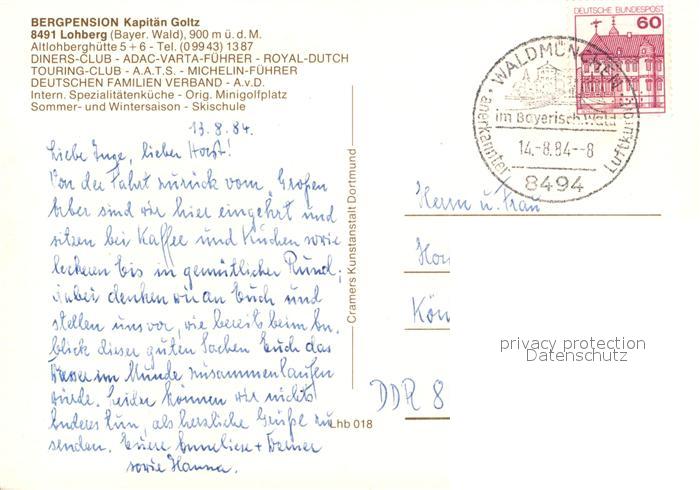 BERGPENSION Kapitän Goltz
8491 Lohberg (Bayer. Wald), 900 m ü. d. M.
Altlohberghütte 5 + 6 - Tel. (0 99 43) 13 87
DINERS-CLUB - ADAC-VARTA-FÜHRER - ROYAL-DUTCH
TOURING-CLUB - A.A.T.S. - MICHELIN-FÜHRER
DEUTSCHEN FAMILIEN VERBAND - A.v.D.
Intern. Spezialitätenküche - Orig. Minigolfplatz
Sommer- und Wintersaison - Skischule
DEUTSCHE BUNDESPOST
60
WALDMÜNCHEN
im Bayerisch. Wald
anerkannter Luftkurort
14.-8.84--8
8494
13.8.84.
Liebe Inge, lieber Horst!
Von der Fahrt zurück vom Großen
Arber sind wir hier eingekehrt und
sitzen bei Kaffee und Kuchen sowie
leckeren Eis in gemütlicher Rund;
dabei denken wir an Euch und
stellen uns vor, wie bereits beim An-
blick dieser guten Sachen Euch das
Wasser im Munde zusammenlaufen
würde. Leider können wir nichts
anderes tun, als herzliche Grüße zu
senden. Euere Anneliese + Werner
sowie Hanna.
Cramers Kunstanstalt Dortmund
Lhb 018
Herrn u. Frau
Hor
Kön
DDR 8
privacy protection
Datenschutz